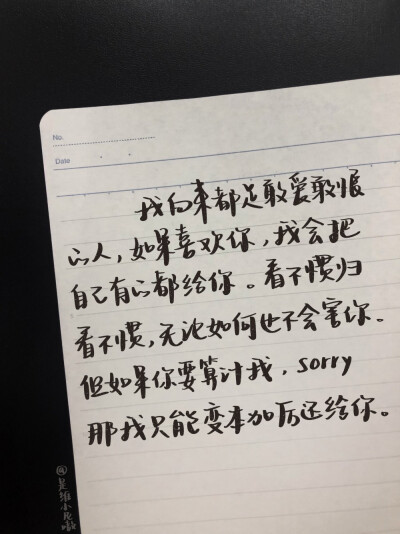 No.
Date
我向来都是敢爱敢恨
的人，如果喜欢你，我会把
自己有的都给你。看不惯归
看不惯，无论如何也不会害你。
但如果你要算计我，sorry
那我只能变本加厉还给你。